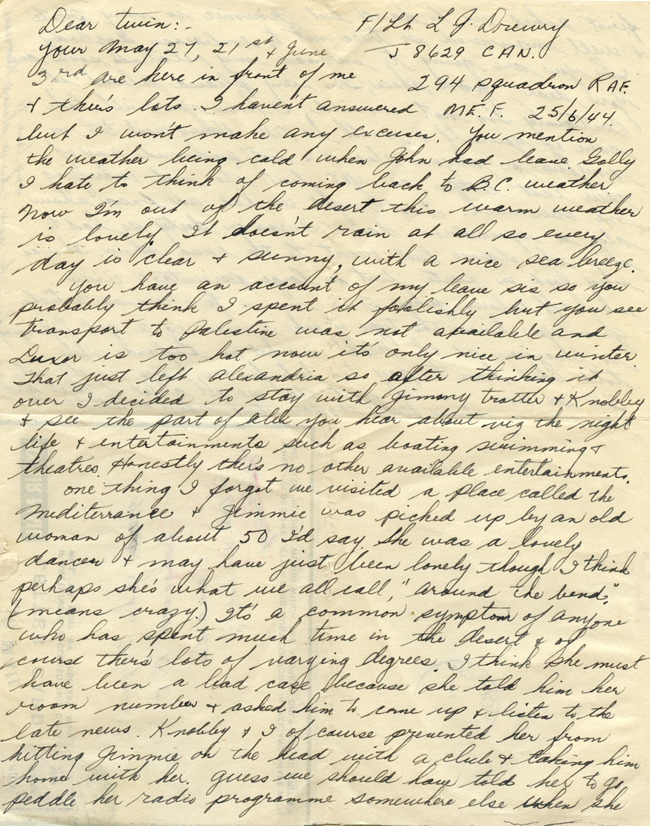 Dear twin:- F/Lt L G Drewry
Your May 27, 21st & June J 8629 CAN.
3rd are here in front of me 294 squadron RAF.
& thers lots I haven't answered M.E.F. 25/6/44.
but I won't make any excuses. You mention
the weather being cold when John had leave Golly
I hate to think of coming back to B.C. weather.
Now I'm out of the desert this warm weather
is lovely It doesn't rain at all so every
day is clear & sunny, with a nice sea breeze.
You have an account of my leave sis so you
probably think I spent it foolishly but you see
transport to Palestine was not available and
Luxor is too hot now it's only nice in winter.
That just left alexandria so after thinking it
over I decided to stay with Jimmy Trotter & Knobby
& see the part of alex you hear about viz the night
life & entertainments such as boating swimming &
theatres. Honestly ther's no other available entertainments.
one thing I forgot we visited a place called the
Mediterrance & Jimmie was picked up by an old
woman of about 50 I'd say. She was a lovely
dancer & may have just been lonely though I think
perhaps she's what we all call, "around the bend."
(means crazy.) It's a common symptom of anyone
who has spent much time in the desert & of
course ther's lots of varying degrees. I think she must
have been a bad case because she told him her
room number & asked him to come up & listen to the
late news. Knobby & I of course prevented her from
hitting Jimmie on the head with a club & taking him
home with her. Guess we should have told her to go
peddle her radio programme somewhere else when she